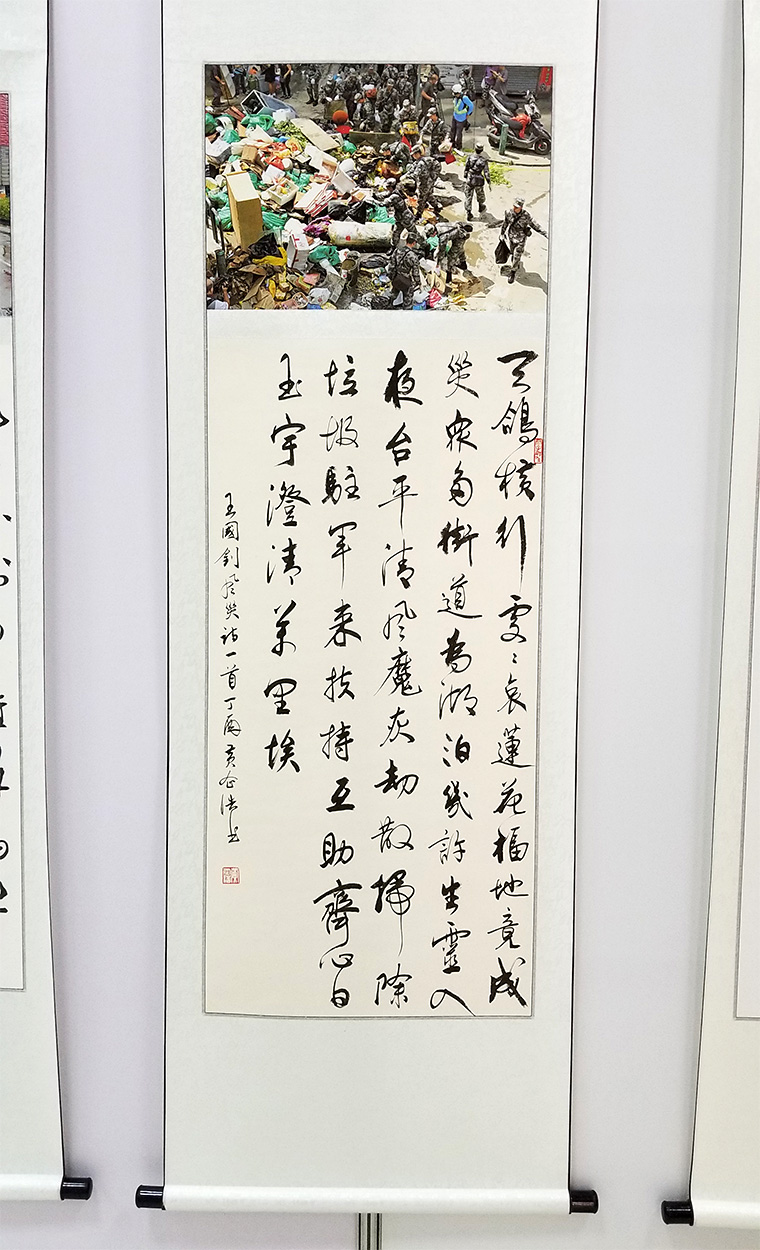 天鴿橫行處々哀蓮花福地竟成
災眾多街道為湖泊幾許生靈入
夜台平清風魔灰劫散掃除
垃圾駐軍來扶持互助齊心日
玉宇澄清萬里埃
王國釗風災詩一首丁酉黃企浩書